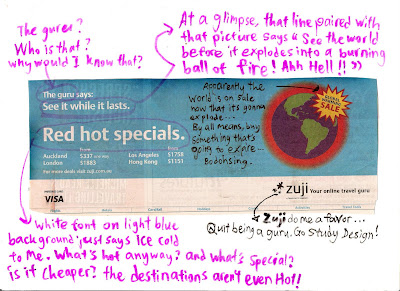 The gurer?
Who is that?
why would I know that?
At a glimpse, that line paired with
that picture says "See the world
before it explodes into a burning
ball of fire! Ahh Hell!!"
The guru says:
See it while it lasts.
Red hot specials.
From From
Auckland $337 one way Los Angeles $1758
London $1883 Hong Kong $1153
For more deals visit zuji.com.au
Apparently the
world is on sale
now that its gonna
explode...
By all means, buy
something that's
going to expire...
Bodohsing.
SALE
VISA
zuji Your online travel guru
Zuji do me a favor...
Quit being a guru. Go Study Design!
white font on light blue
background just says ice cold
to me. What's hot anyway? and what's special?
is it cheaper? the destinations aren't even Hot!